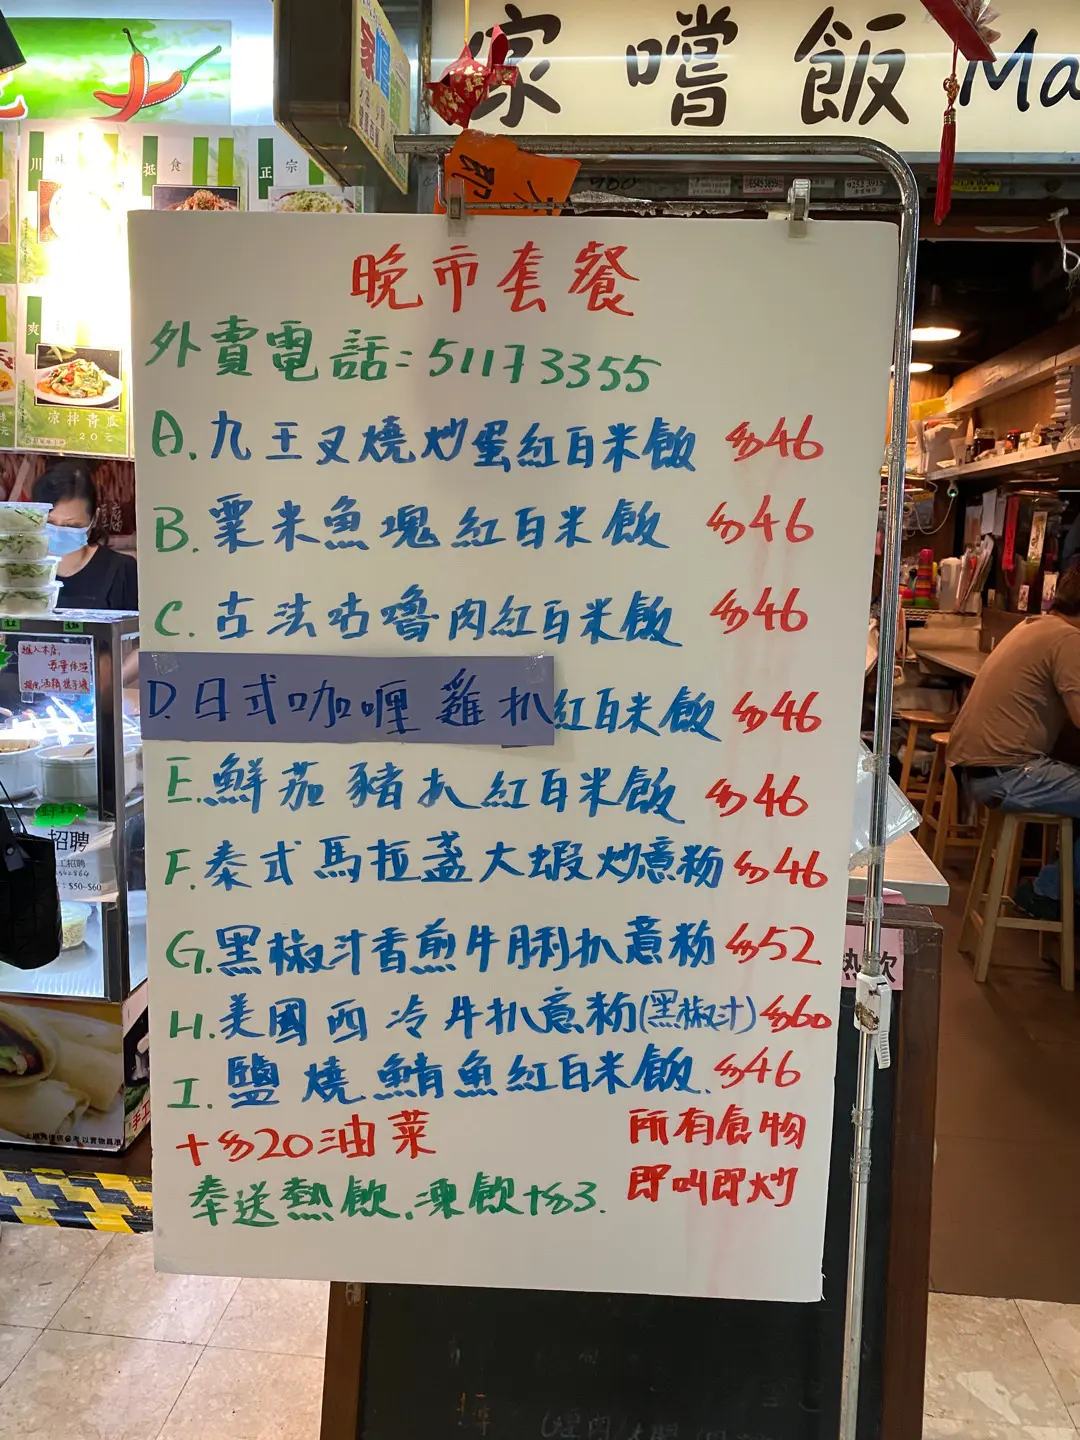 家嚐飯 Ma
川味
抵食
正宗
爽
凉拌杳瓜
20元
晚市套餐
外賣電話:51173355
A.九王叉燒炒蛋紅白米飯 $46
B.粟米魚塊紅白米飯 $46
C.古法咕嚕肉紅白米飯 $46
D.日式咖喱雞扒紅白米飯 $46
E.鮮茄豬扒紅白米飯 $46
F.泰式馬拉盞大蝦炒意粉 $46
G.黑椒汁香煎牛脷扒意粉 $52
H.美國西冷牛扒意粉(黑椒汁) $60
I.鹽燒鯖魚紅白米飯. $46
+$20油菜
所有食物
即叫即炒
奉送熱飲.凍飲+$3.
招聘
$50-$60
熱飲